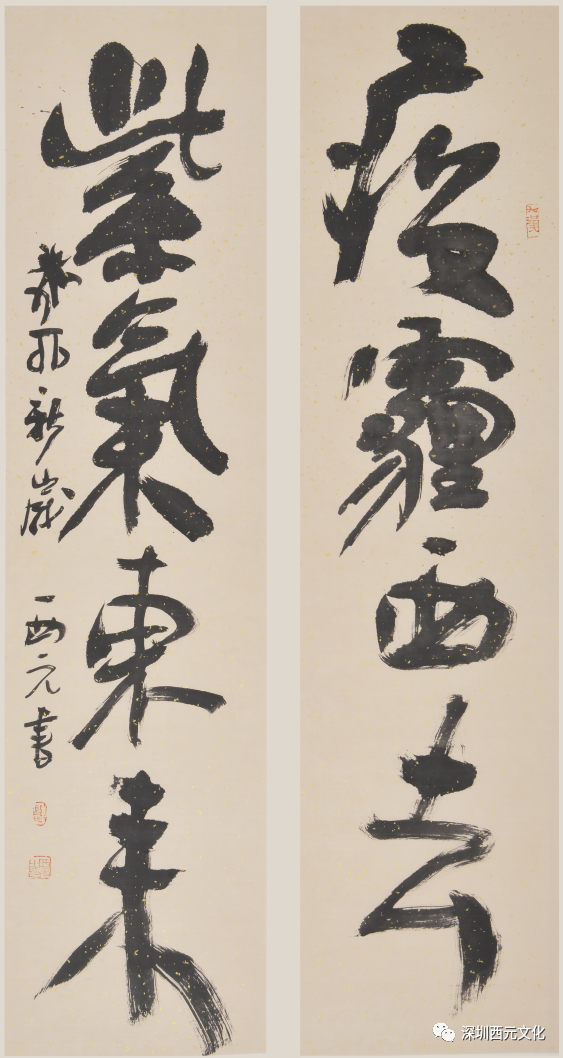 疫霾西去
紫氣東来
癸卯新歲 西元書
深圳西元文化